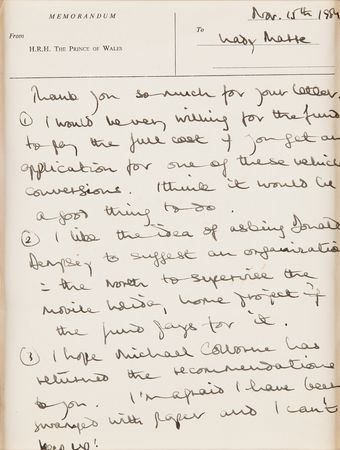 MEMORANDUM
From
H.R.H. THE PRINCE OF WALES
Nov. 15th 1984
To
Lady
Thank you so much for your letter.
① I would be very willing for the fund
to pay the full cost if you get an
application for one of these vehicle
conversions. I think it would be
a good thing to do.
② I like the idea of asking Donald
Dempsey to suggest an organizatio
in the North to supervise the
mobile home project if
the fund pays for it.
③ I hope Michael Colborne has
returned the recommendations
to you. I'm afraid I have been
swamped with paper and I can't
keep up!